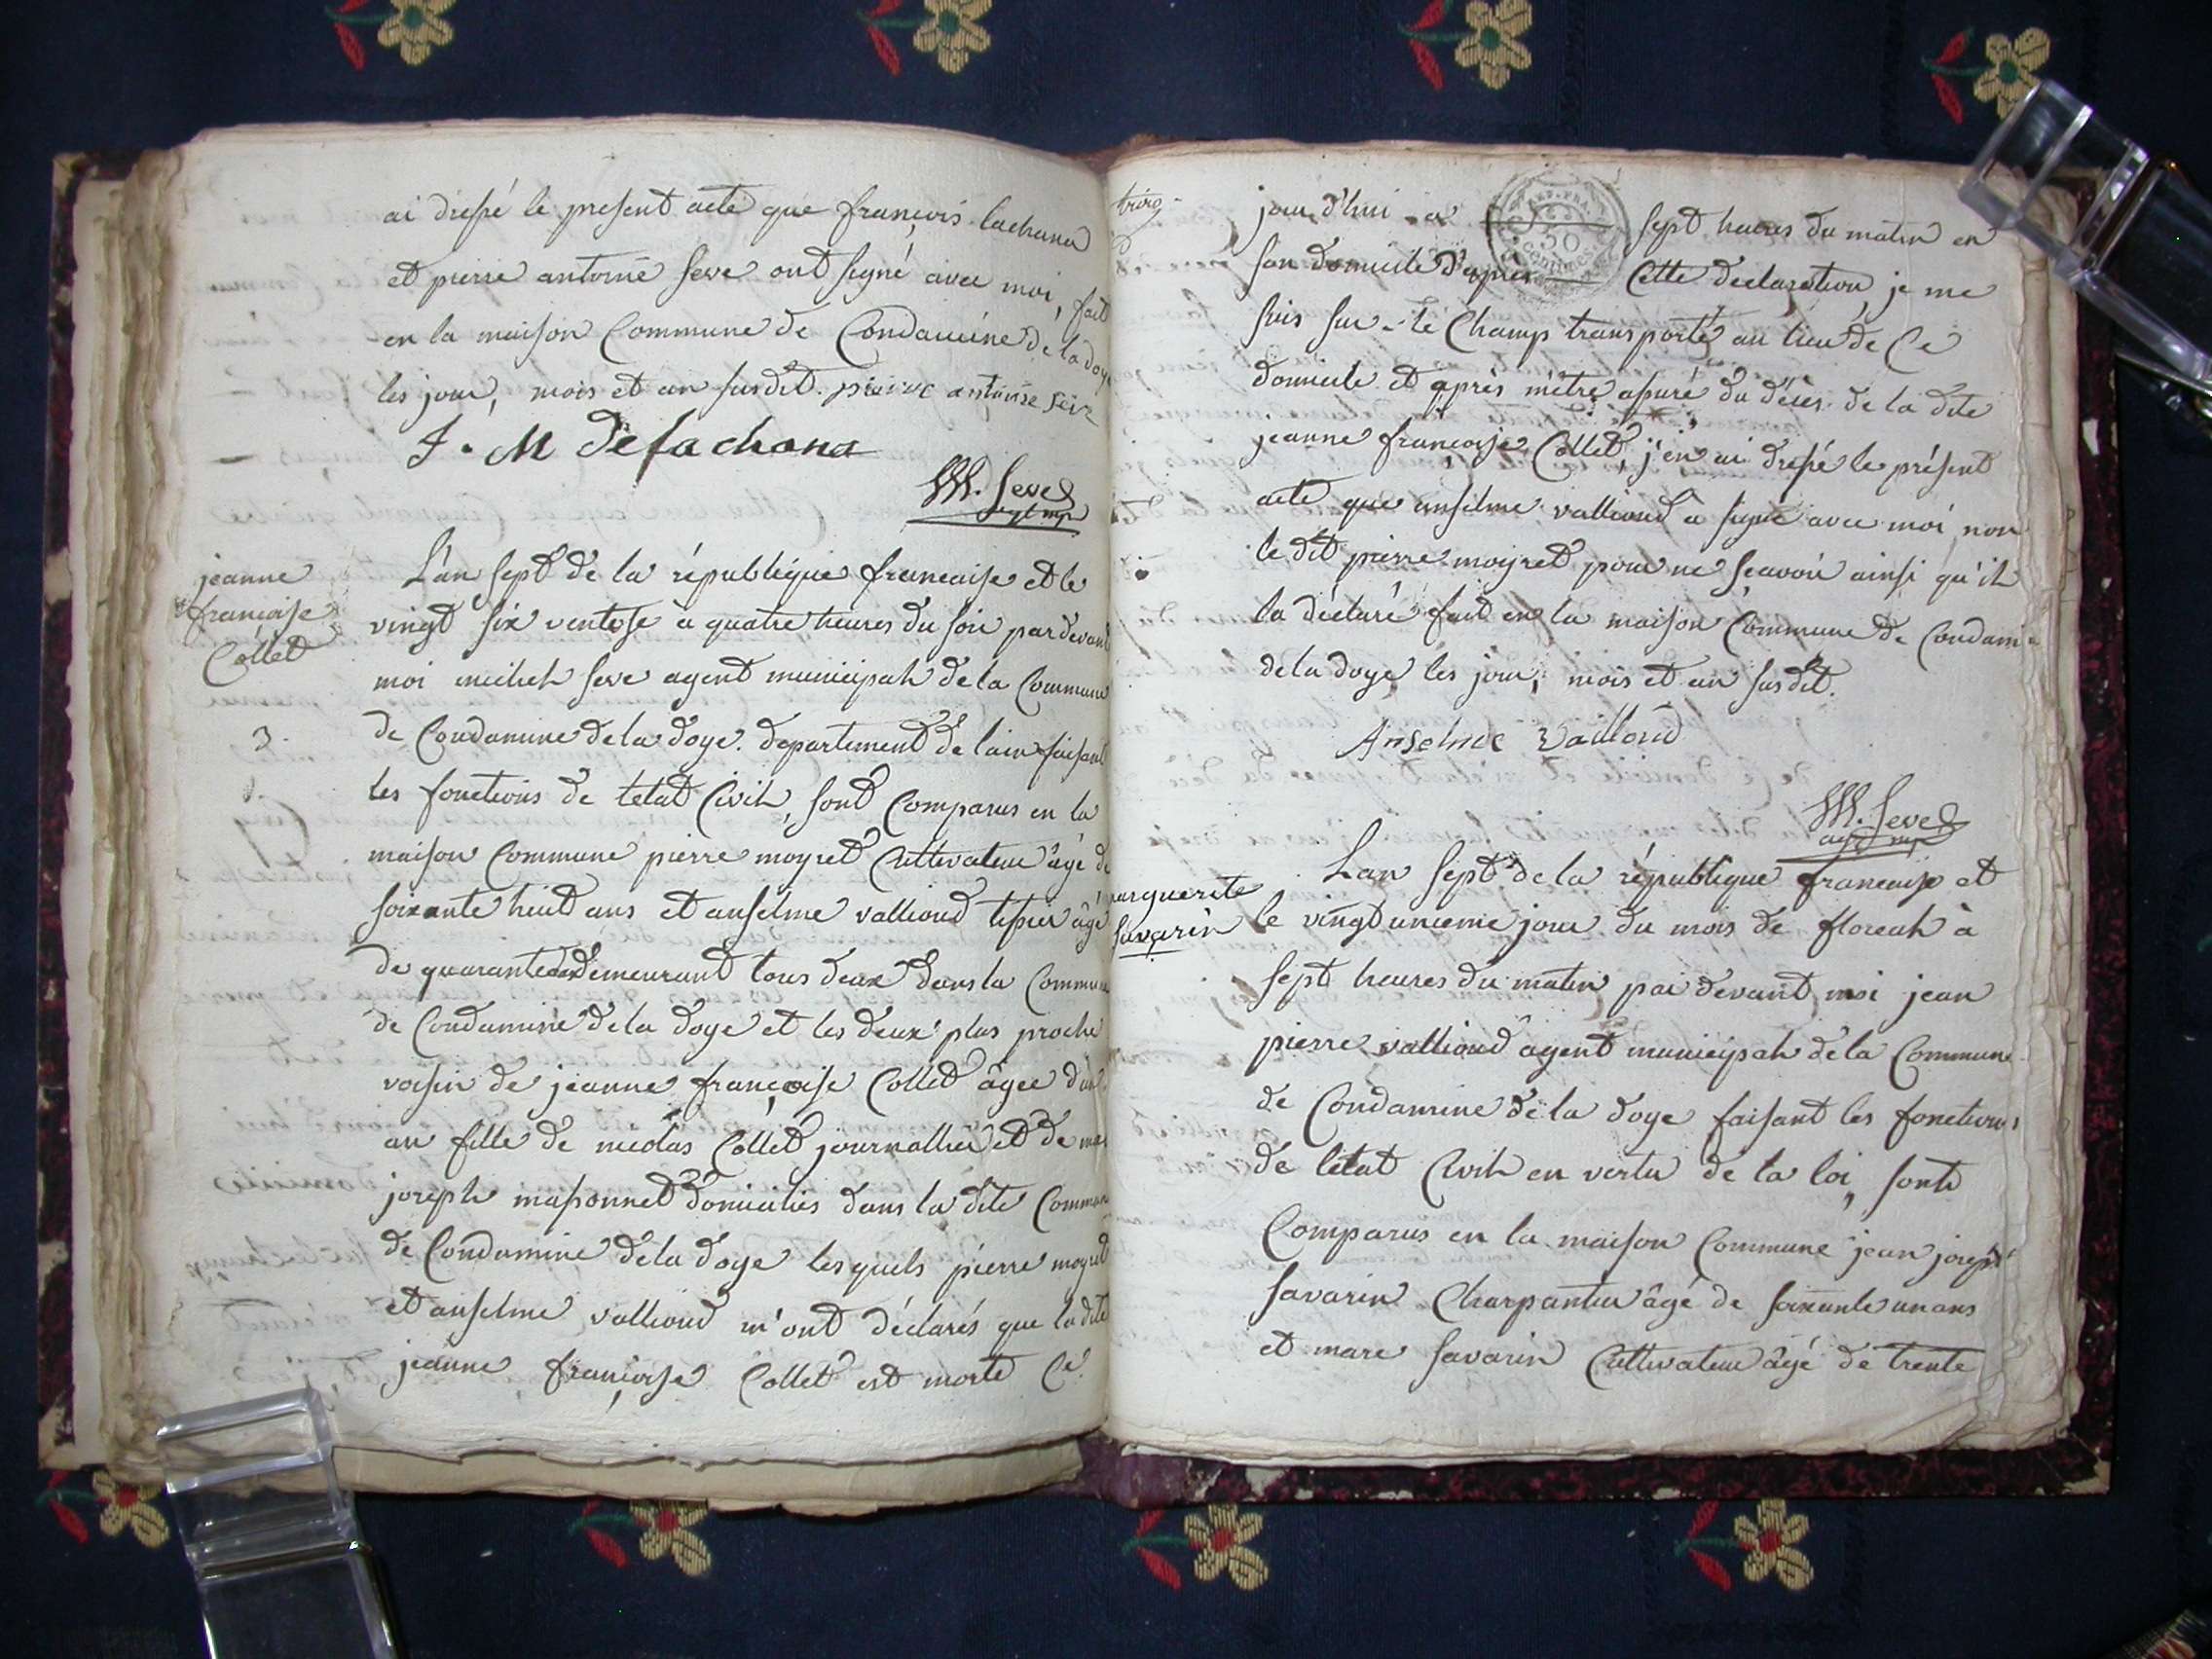 ai dressé le present acte que françois lachana
et pierre antoine seve ont signé avec moi, fait
en la maison Commune de Condamine de la doye
les jour, mois et an susdit. pierre antoine seve
J. M Delachana
M. Seve
agt mp
jeanne
françoise
Collet
3.
L'an sept de la république francaise et le
vingt six ventose a quatre heures du soir par devant
moi michel seve agent municipal de la Commune
de Condamine de la doye. departement de lain faisant
les fonctions de letat Civil, sont Comparus en la
maison Commune pierre moyret Cultivateur âgé de
soixante huit ans et anselme vallioud tissier âgé
de quarante demeurant tous deux dans la Commune
de Condamine de la doye et les deux plus proche
voisin de jeanne françoise Collet âgee d'un
an fille de nicolas Collet journallier et de
joseph massonnet domicilies dans la dite Commune
de Condamine de la doye lesquels pierre moyret
et anselme vallioud m'ont déclarés que la dite
jeanne françoise Collet est morte Ce
jour d'hui a sept heures du matin en
30
Centimes
son domicile d'apres Cette declaration, je me
suis sur-le Champ transporté au lieu de Ce
domicile et après mêtre assuré du déces de la dite
jeanne françoise Collet, j'en ai dressé le présent
acte que anselme vallioud a signé avec moi non
le dit pierre moyret pour ne sçavoir ainsi qu'il
la déclaré fait en la maison Commune de Condami-
de la doye les jour, mois et an susdit.
Anselme Vailloud
M. Seve
agt mp
marguerite
savarin
Lan sept de la république francaise et
le vingt unieme jour du mois de floreal à
sept heures du matin par devant moi jean
pierre vallioud agent municipal de la Commune
de Condamine de la doye faisant les fonctions
de letat Civil en vertu de la loi, sont
Comparus en la maison Commune jean joseph
savarin Charpantier âgé de soixante un ans
et marc savarin Cultivateur âgé de trente